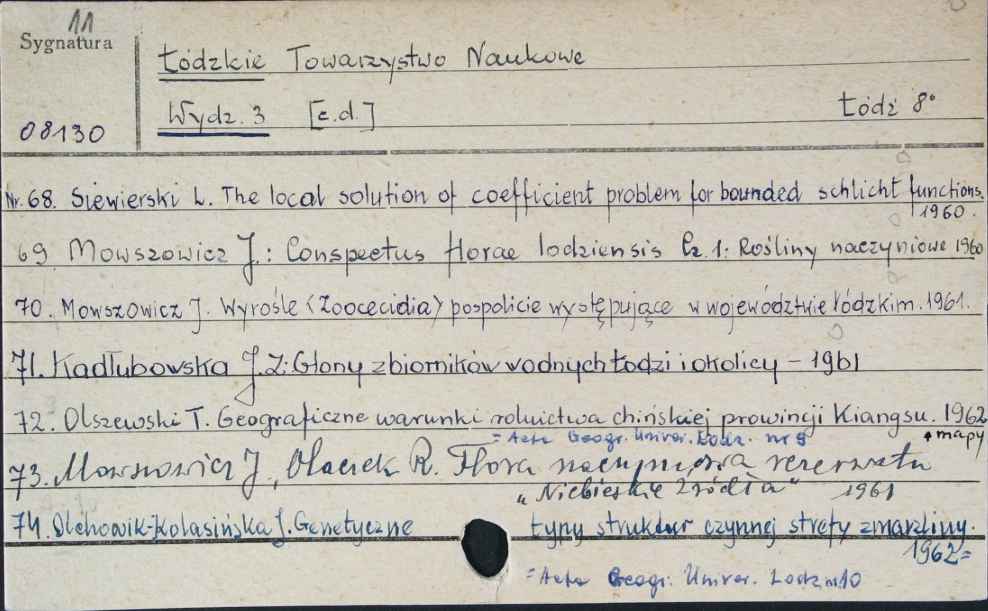 11
Sygnatura
Łódzkie Towarzystwo Naukowe
Wydz. 3 [c.d.]
Łódź 8°
08130
Nr. 68. Siewierski L. The local solution of coefficient problem for bounded schlicht functions.
1960.
69. Mowszowicz J.: Conspectus florae lodziensis Cz. 1: Rośliny naczyniowe 1960
70. Mowszowicz J. Wyrośle (Zoocecidia) pospolicie występujące w województwie łódzkim. 1961.
71. Kadłubowska J.Z: Glony zbiorników wodnych Łodzi i okolicy – 1961
72. Olszewski T. Geograficzne warunki rolnictwa chińskiej prowincji Kiangsu. 1962
= Acta Geogr. Univer. Lodz. nr 9
+ mapy
73. Mowszowicz J., Olaczek R. Flora naczyniowa rezerwatu
„Niebieskie Źródła" 1961
74. Olchowik-Kolasińska J. Genetyczne typy struktur czynnej strefy zmarzliny.
1962=
= Acta Geogr. Univer. Lodz nr 10